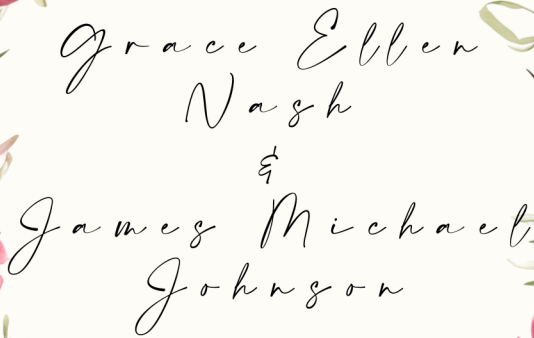 Grace Ellen
Nash
&
James Michael
Johnson